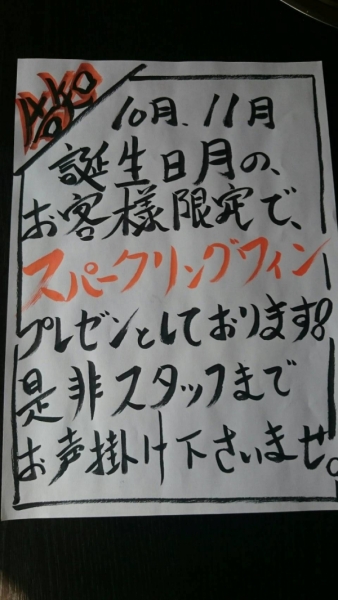 10月、11月
誕生日月の、
お客様限定で、
スパークリングワイン
プレゼントしております!
是非スタッフまで
お声掛け下さいませ。